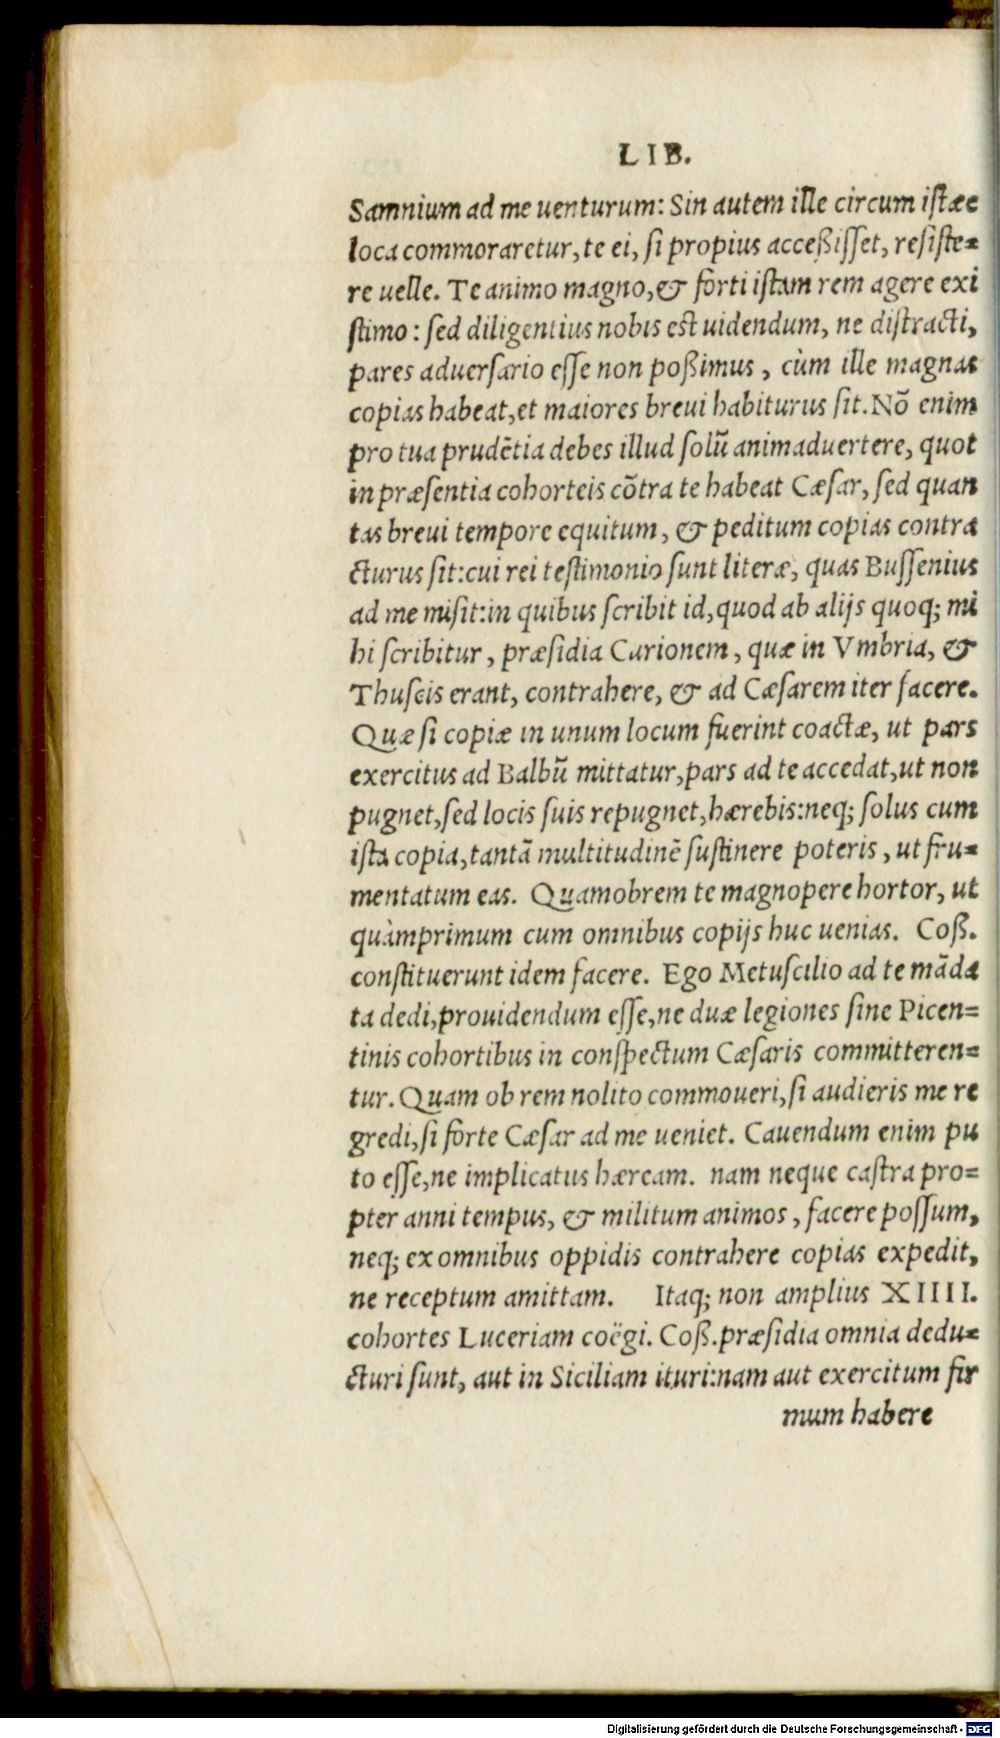 LIB.
Samnium ad me uenturum: Sin autem ille circum istæc
loca commoraretur, te ei, si propius acceßisset, resiste=
re uelle. Te animo magno, & forti istam rem agere exi
stimo: sed diligentius nobis est uidendum, ne distracti,
pares aduersario esse non poßimus, cùm ille magnas
copias habeat, et maiores breui habiturus sit. Nō enim
pro tua prudētia debes illud solū animaduertere, quot
in præsentia cohorteis cōtra te habeat Cæsar, sed quan
tas breui tempore equitum, & peditum copias contra
cturus sit: cui rei testimonio sunt literæ, quas Bussenius
ad me misit: in quibus scribit id, quod ab alijs quoq; mi
hi scribitur, præsidia Curionem, quæ in Vmbria, &
Thuscis erant, contrahere, & ad Cæsarem iter facere.
Quæ si copiæ in unum locum fuerint coactæ, ut pars
exercitus ad Balbū mittatur, pars ad te accedat, ut non
pugnet, sed locis suis repugnet, hærebis: neq; solus cum
ista copia, tantā multitudinē sustinere poteris, ut fru=
mentatum eas. Quamobrem te magnopere hortor, ut
quàmprimum cum omnibus copijs huc uenias. Coß.
constituerunt idem facere. Ego Metuscilio ad te māda
ta dedi, prouidendum esse, ne duæ legiones sine Picen=
tinis cohortibus in conspectum Cæsaris committeren=
tur. Quam ob rem nolito commoueri, si audieris me re
gredi, si forte Cæsar ad me ueniet. Cauendum enim pu
to esse, ne implicatus hæream. nam neque castra pro=
pter anni tempus, & militum animos, facere possum,
neq; ex omnibus oppidis contrahere copias expedit,
ne receptum amittam. Itaq; non amplius XIIII.
cohortes Luceriam coëgi. Coß. præsidia omnia dedu=
cturi sunt, aut in Siciliam ituri: nam aut exercitum fir
mum habere
Digitalisierung gefördert durch die Deutsche Forschungsgemeinschaft - DFG